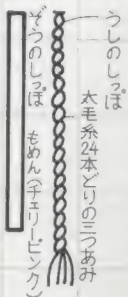 うしのしっぽ
太毛糸24本どりの三つあみ
ぞうのしっぽ
もめん(チェリーピンク)